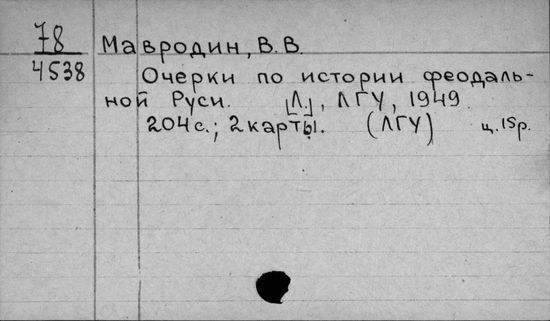 78
4538
Мавродин, В. В.
Очерки по истории феодаль-
ной Руси. [Л.], ЛГУ, 1949.
204 с.; 2 карты. (ЛГУ) ц. 15р.